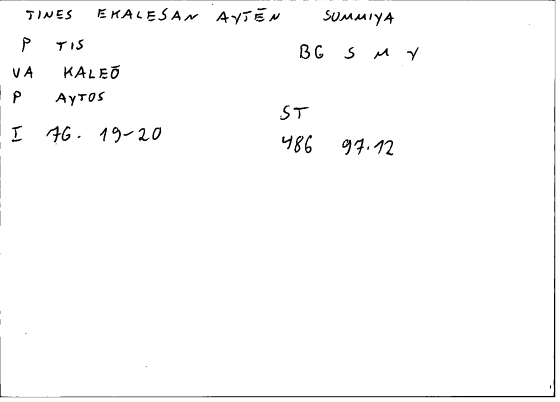 TINES EKALESAN AYTĒN SUMMIYA
P TIS BG S M Y
VA KALEŌ
P AYTOS
ST
I 76. 19-20
486 97.12